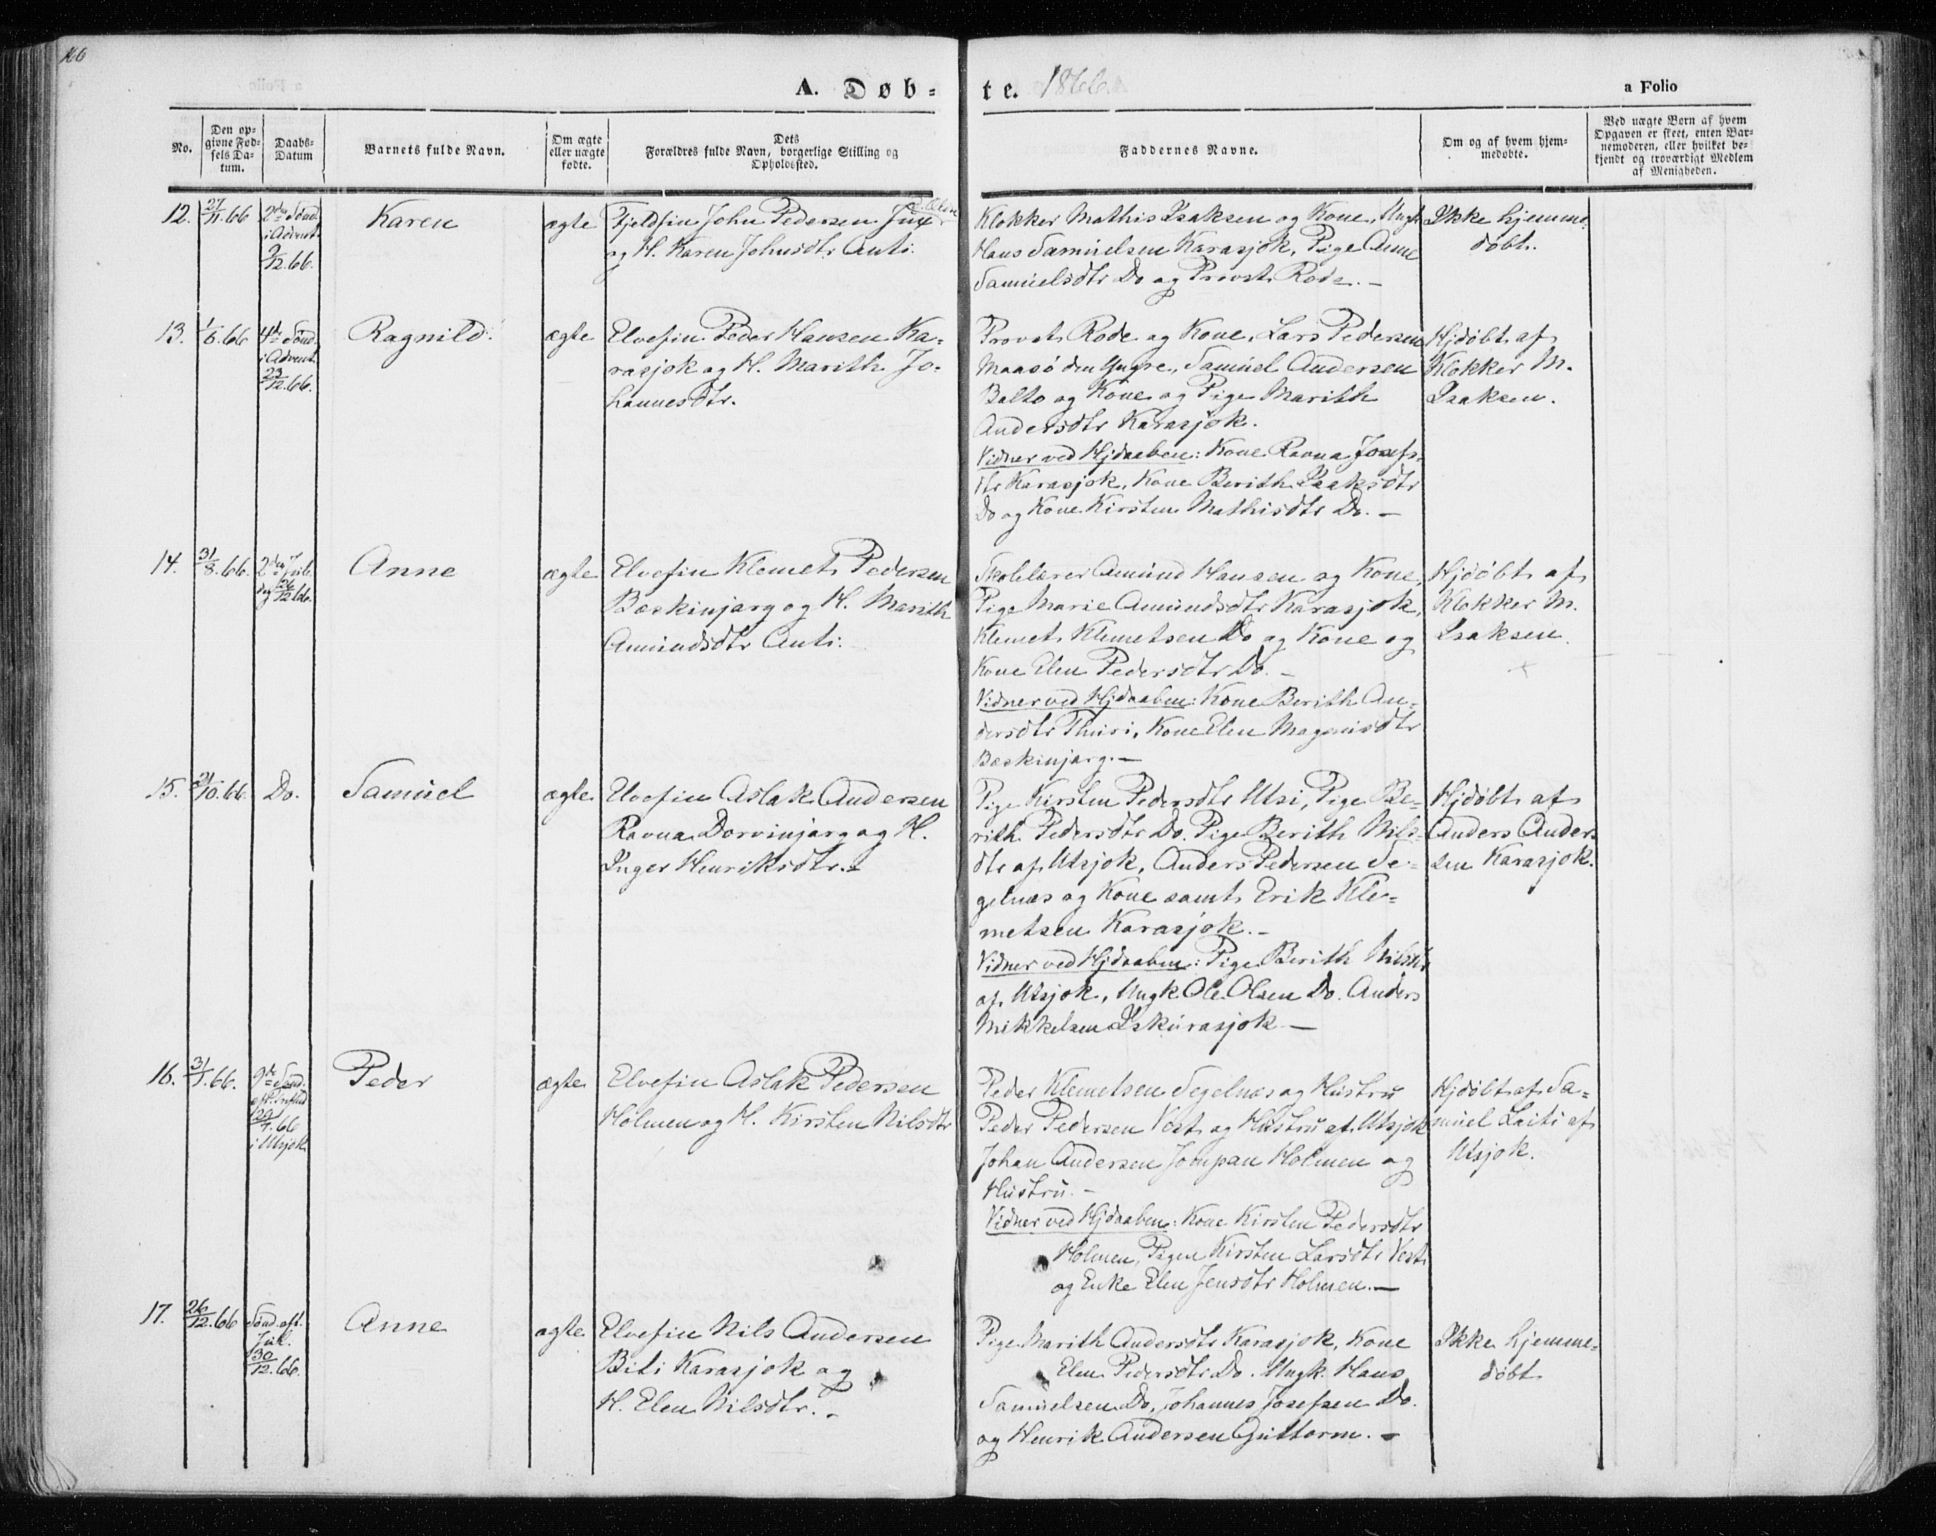 A. Døb-
te. 1866.
a Folio
No.
Den op-
givne Fød-
sels Da-
tum.
Daabs-
Datum
Barnets fulde Navn.
Om ægte
eller uægte
fødte.
Dets
Forældres fulde Navn, borgerlige Stilling og
Opholdssted.
Faddernes Navne.
Om og af hvem hjem-
medøbte.
Ved uægte Børn af hvem
Opgaven er skeet, enten Bar-
nemoderen, eller hvilket be-
kjendt og troværdigt Medlem
af Menigheden.
12.
27/11.66
2den Sønd.
i Advent
9/12.66.
Karen
ægte
Fjeldfin John Pedersen
og H. Karen Johnsdtr Anti.
Klokker Mathis Isaksen og Kone, Ungk
Hans Samuelsen Karasjok, Pige Anne
Samuelsdtr Do og Provst Rode. —
Ikke hjemme-
døbt.
13.
1/8.66
4de Sønd.
i Advent
23/12.66.
Ragnild.
ægte
Elvefin Peder Hansen Ka-
rasjok og H. Marith Jo-
hannesdtr.
Provst Rode og Kone, Lars Pedersen
Maasø den Yngre, Samuel Andersen
Balto og Kone og Pige Marith
Andersdtr Karasjok.
Vidner ved Hjdaaben: Kone Ravna Josefs-
dtr Karasjok, Kone Berith Isaksdtr
Do og Kone Kirsten Mathisdtr Do. —
Hjdøbt af
Klokker M.
Isaksen.
14.
31/8.66.
2den Jule-
dag 26/12 66.
Anne
ægte
Elvefin Klemet Pedersen
Bæskinjarg og H. Marith
Amundsdtr Anti.
Skolelærer Amund Hansen og Kone,
Pige Marie Amundsdtr Karasjok,
Klemet Klemetsen Do og Kone og
Kone Elen Pedersdtr Do. —
Vidner ved Hjdaaben: Kone Berith An-
dersdtr Thuri, Kone Elen Magnusdtr
Bæskinjarg. —
Hjdøbt af
Klokker M.
Isaksen.
15.
21/10.66
Do.
Samuel
ægte
Elvefin Aslak Andersen
Ravna Dorvinjarg og H.
Inger Henriksdtr. —
Pige Kirsten Pedersdtr Utsi, Pige Be-
rith Pedersdtr Do. Pige Berith Nils-
dtr af Utsjok, Anders Pedersen Se-
gelnæs og Kone samt Erik Kle-
metsen Karasjok. —
Vidner ved Hjdaaben: Pige Berith Nilsdtr
af Utsjok, Ungk Ole Olsen Do. Anders
Mikkelsen Iskurasjok —
Hjdøbt af
Anders Ander-
sen Karasjok.
16.
3/1.66.
i Utsjok
Peder
ægte
Elvefin Aslak Pedersen
Holmen og H. Kirsten Nilsdtr
Peder Klemetsen Segelnæs og Hustru
Peder Pedersen Vest og Hustru af Utsjok
Johan Andersen Jompan Holmen og
Hustru. —
Vidner ved Hjdaaben: Kone Kirsten Pedersdtr
Holmen, Pigen Kirsten Larsdtr Vest
og Enke Elen Jensdtr Holmen. —
Hjdøbt af Sa-
muel Laiti af
Utsjok.
17.
26/12.66
Sønd. eft.
Jul.
30/12.66.
Anne
ægte
Elvefin Nils Andersen
Biti Karasjok og
H. Elen Nilsdtr. —
Pige Marith Andersdtr Karasjok, Kone
Elen Pedersdtr Do. Ungk. Hans
Samuelsen Do, Johannes Josefsen Do.
og Henrik Andersen Guttorm. —
Ikke hjemme-
døbt